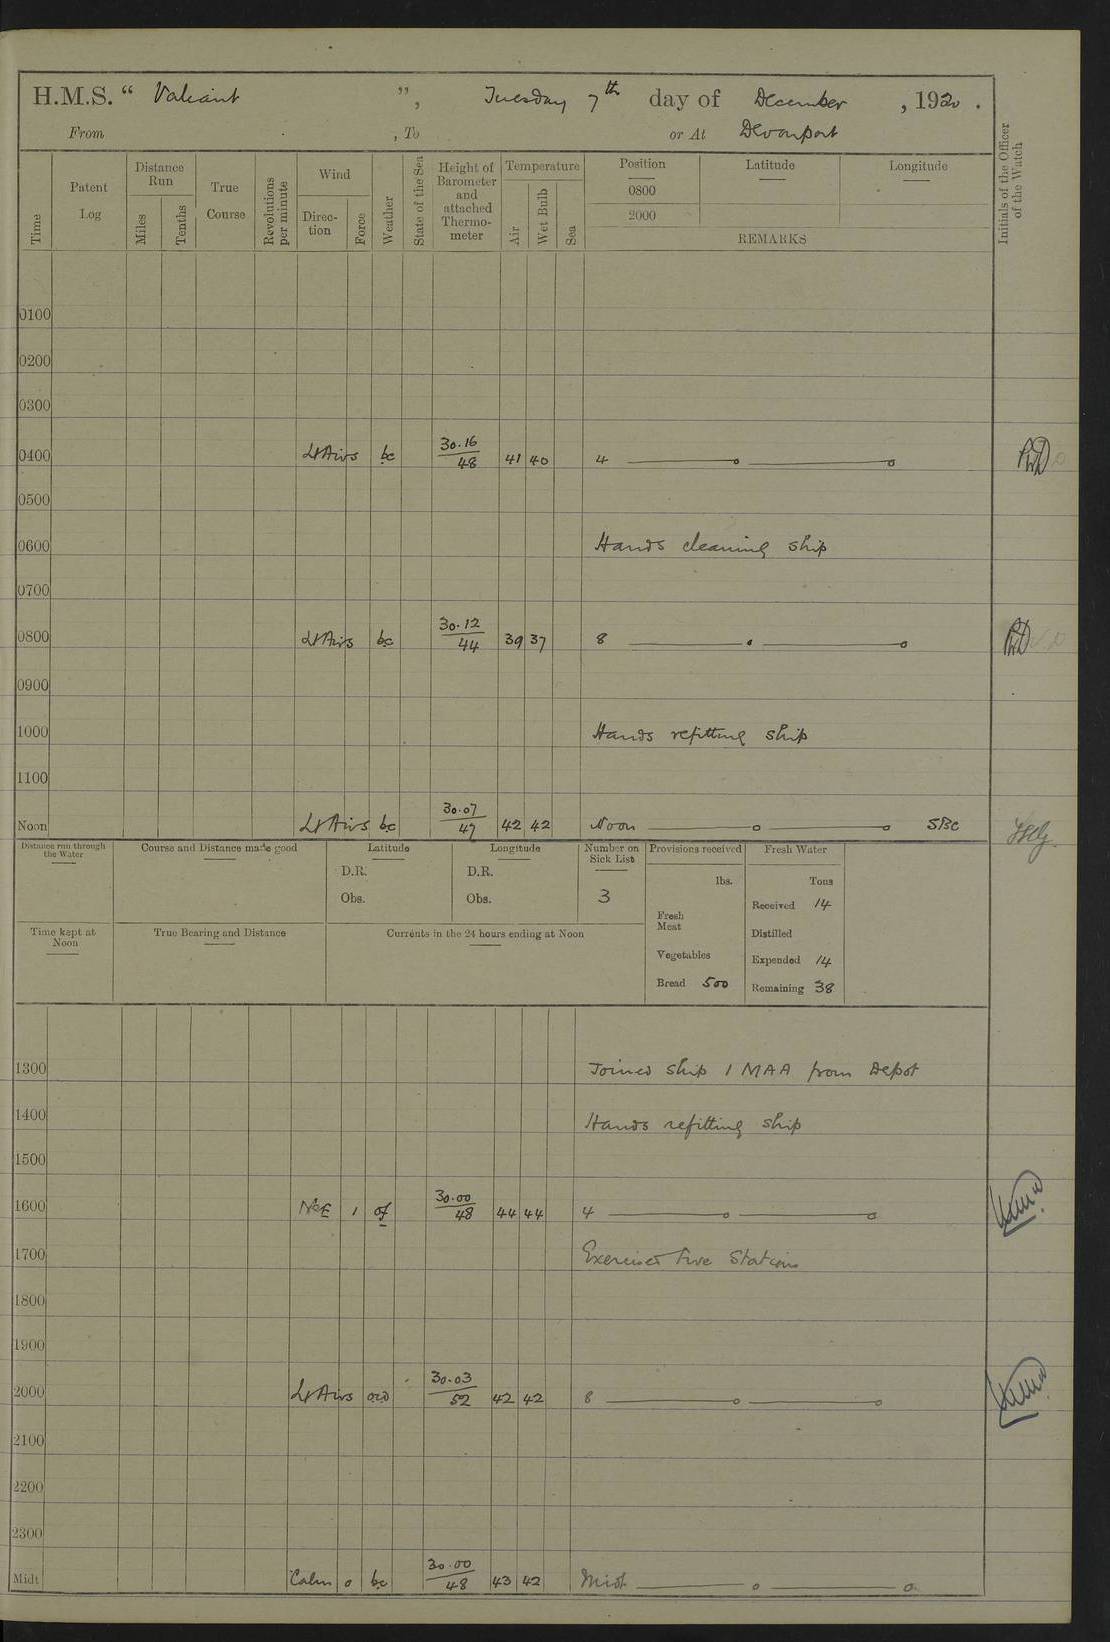 H.M.S. “ Valiant ”, Tuesday 7th day of December , 1920 .
From , To or At Devonport
Time Patent Log Distance Run Miles Tenths True Course Revolutions per minute Wind Direc- tion Force Weather State of the Sea Height of Barometer and attached Thermo- meter Temperature Air Wet Bulb Sea Position Latitude Longitude Initials of the Officer of the Watch
0800
2000
REMARKS
0100
0200
0300
0400 Lt Airs bc 30.16 / 48 41 40 4
0500
0600 Hands cleaning ship
0700
0800 Lt Airs bc 30.12 / 44 39 37 8
0900
1000 Hands refitting ship
1100
Noon Lt Airs bc 30.07 / 47 42 42 Noon SBC
Distance run through the Water Course and Distance made good Latitude Longitude Number on Sick List Provisions received Fresh Water
D.R. D.R. lbs. Tons
Obs. Obs. 3 Fresh Meat Received 14
Time kept at Noon True Bearing and Distance Currents in the 24 hours ending at Noon Distilled
Vegetables Expended 14
Bread 500 Remaining 38
1300 Joined ship 1 MAA from Depot
1400 Hands refitting ship
1500
1600 1 of 30.00 / 48 44 44 4
1700 Exercised Fire Stations
1800
1900
2000 Lt Airs 30.03 / 52 42 42 8
2100
2200
2300
Midt Calm 0 bc 30.00 / 48 43 42 Midt